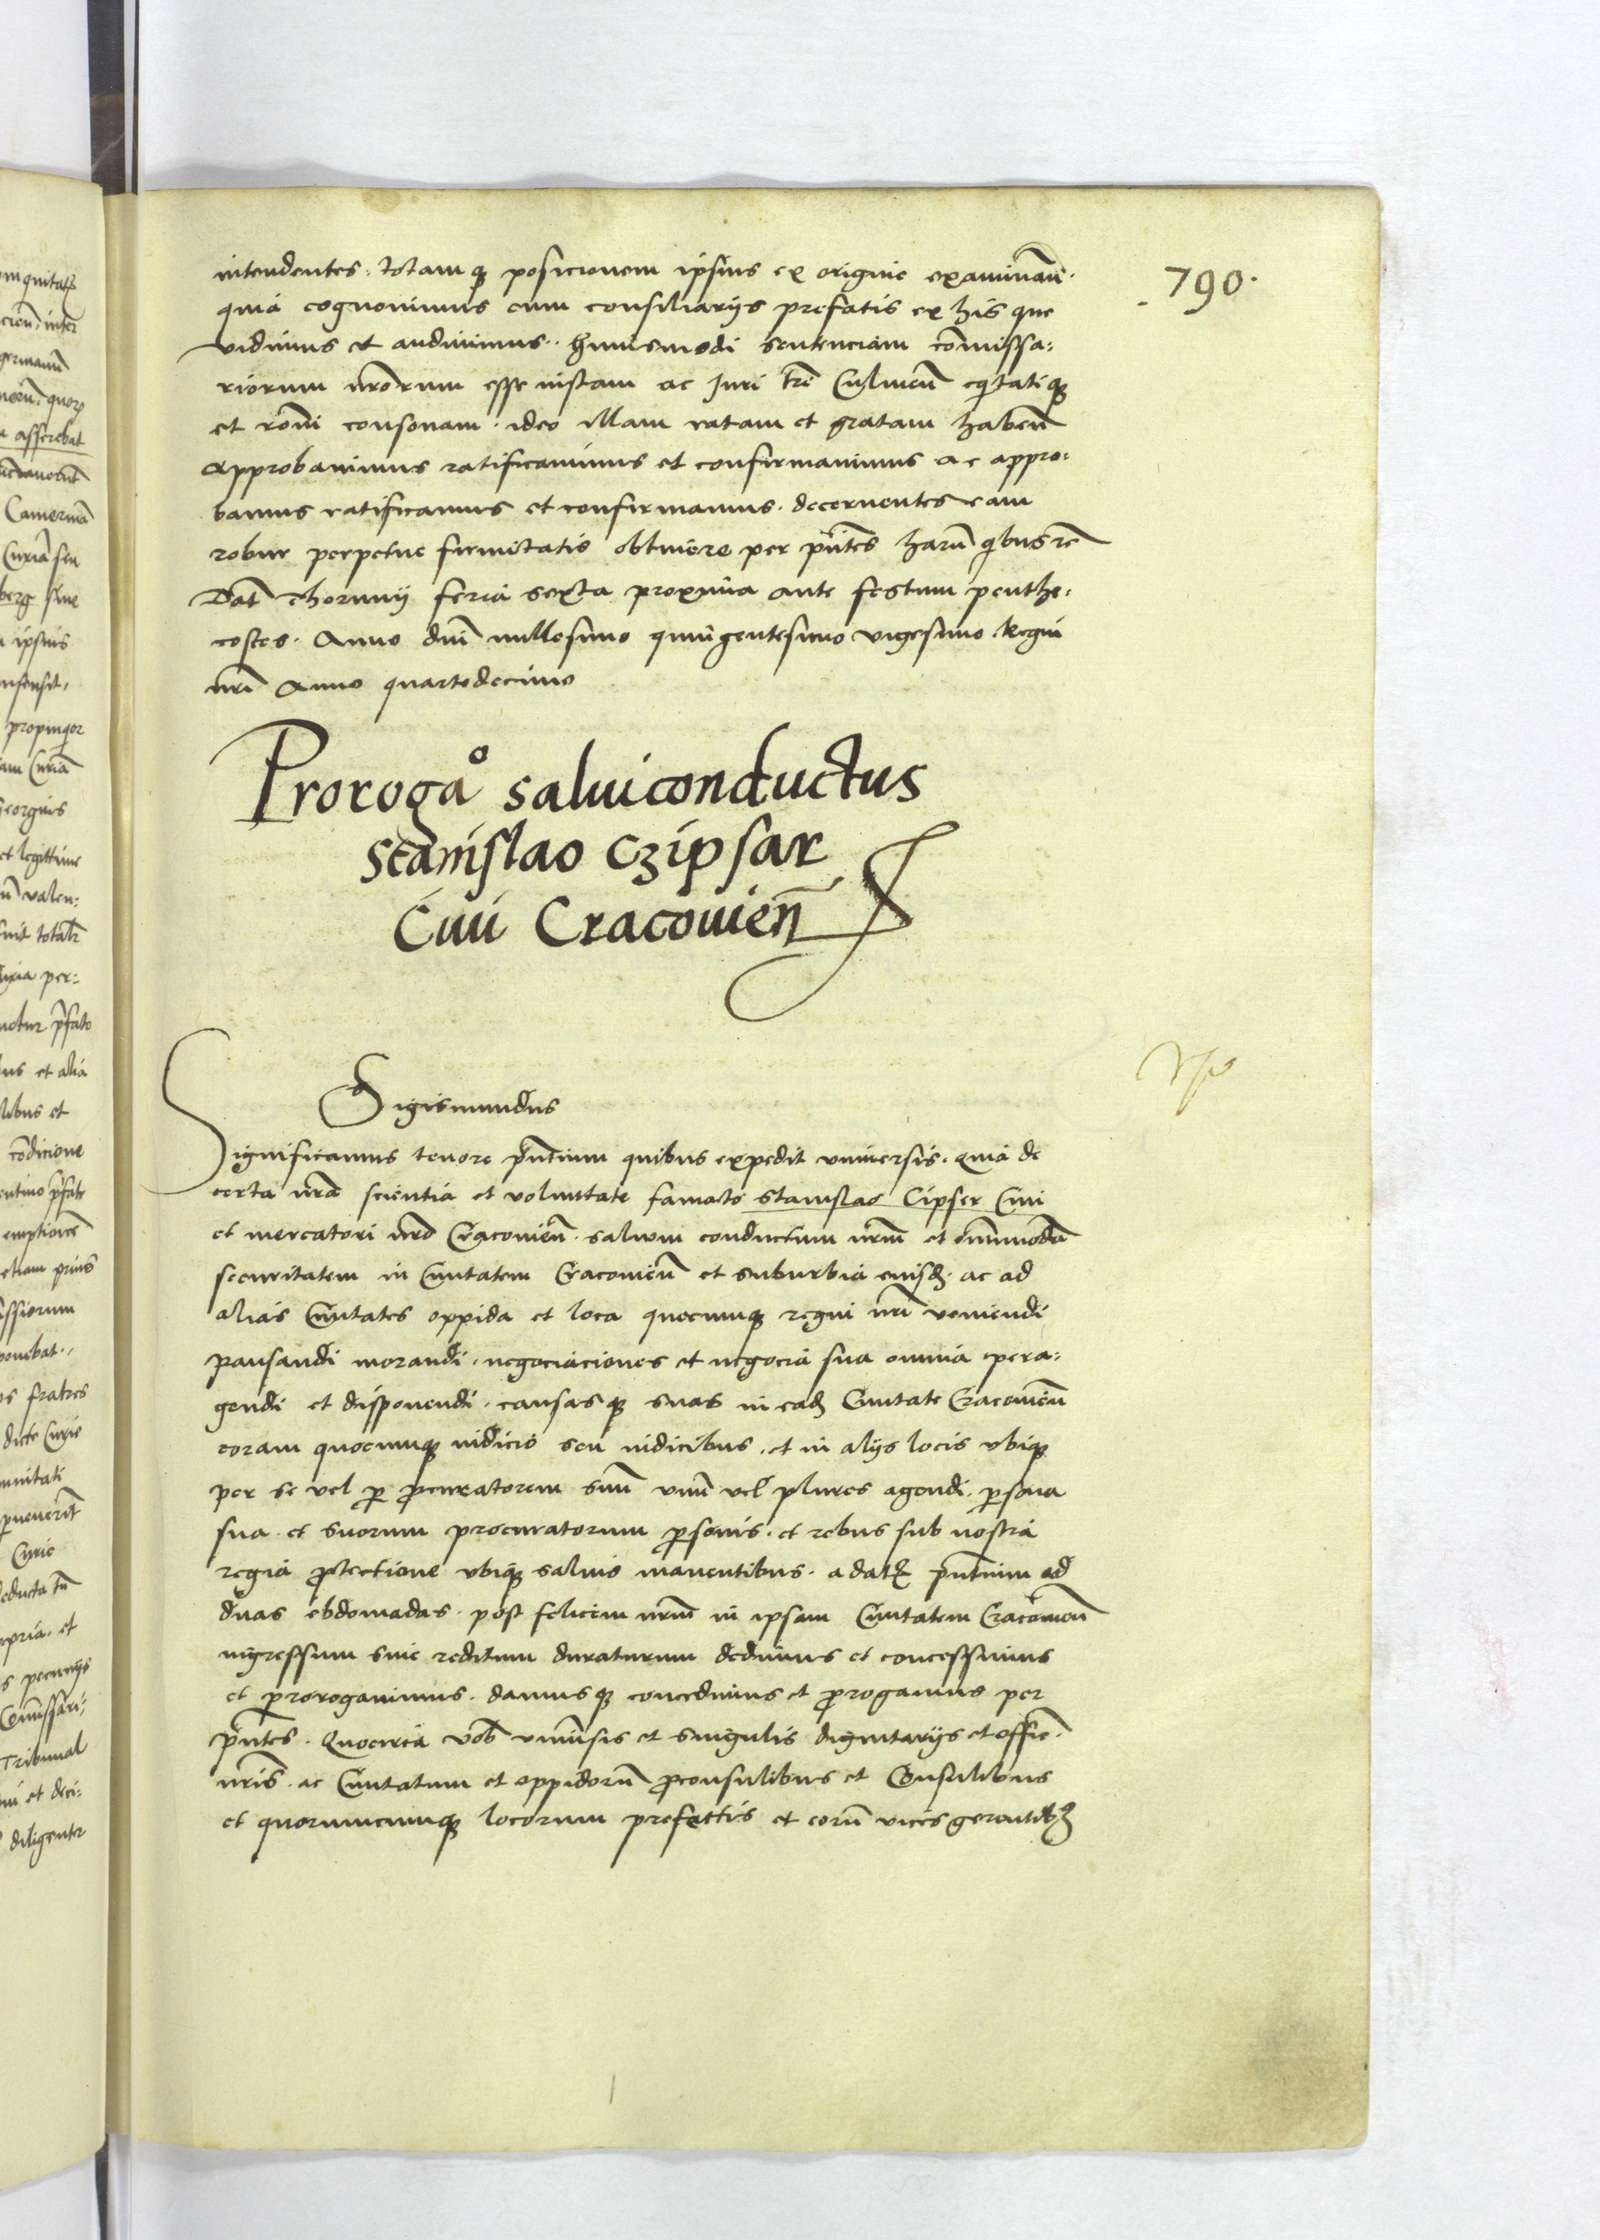 790.
intendentes. totamq₃ posicionem ipsius ex origine examinan̄.
quia cognovimus cum consiliarijs prefatis ex his que
vidimus et audivimus. huiusmodi sentenciam com̄issa:
riorum nr̄orum esse iustam ac Juri trē Culmen̄ eq̄tatiq₃
et rōni consonam. ideo illam ratam et gratam haben̄
approbavimus ratificavimus et confirmavimus ac appro:
bamus ratificamus et confirmamus. decernentes eam
robur perpetue firmitatis obtinere per pn̄tes harū q̄bus rē
Dat̄ Thorunij feria sexta proxima ante festum penthe:
costes. Anno dn̄i millesimo quingentesimo vigesimo Regni
nr̄i Anno quartodecimo
Prorogaº salviconductus
Stanislao Czipsar
Civi Cracovien̄
Sigismundus
Significamus tenore pn̄tium quibus expedit universis. quia de
certa nr̄a scientia et voluntate famato Stanislao Cipser Civi
et mercatori nr̄o Cracovien̄. salvum conductum nr̄um et om̄imodā
securitatem in Civitatem Cracovien̄ et suburbia eiusd̄. ac ad
alias Civitates oppida et loca quecumq₃ regni nr̄i veniendi
pausandi morandi. negociaciones et negocia sua omnia pera:
gendi et disponendi. causasq₃ suas in ead̄ Civitate Cracovien̄
coram quocumq₃ iudicio seu iudicibus. et in alijs locis ubiq₃
per se vel p̱ ꝓcuratorem suū unū vel plures agendi. p̱sona
sua et suorum procuratorum p̱sonis. et rebus sub nostra
regia ꝓtectione ubiq₃ salvis manentibus. a dat̄ pn̄tium ad
duas ebdomadas. post felicem nr̄um in ipsam Civitatem Cracovien̄
ingressum sive reditum duraturum dedimus et concessimus
et p̱rorogavimus. damusq₃ concedimus et ꝓrogamus per
pn̄tes. Quocirca vob̄ univ̄sis et singulis dignitarijs et offic̄.
nr̄is. ac Civitatum et oppidorū ꝓconsulibus et Consulibus
et quorumcumq₃ locorum prefectis et eorū vices gerentib₃